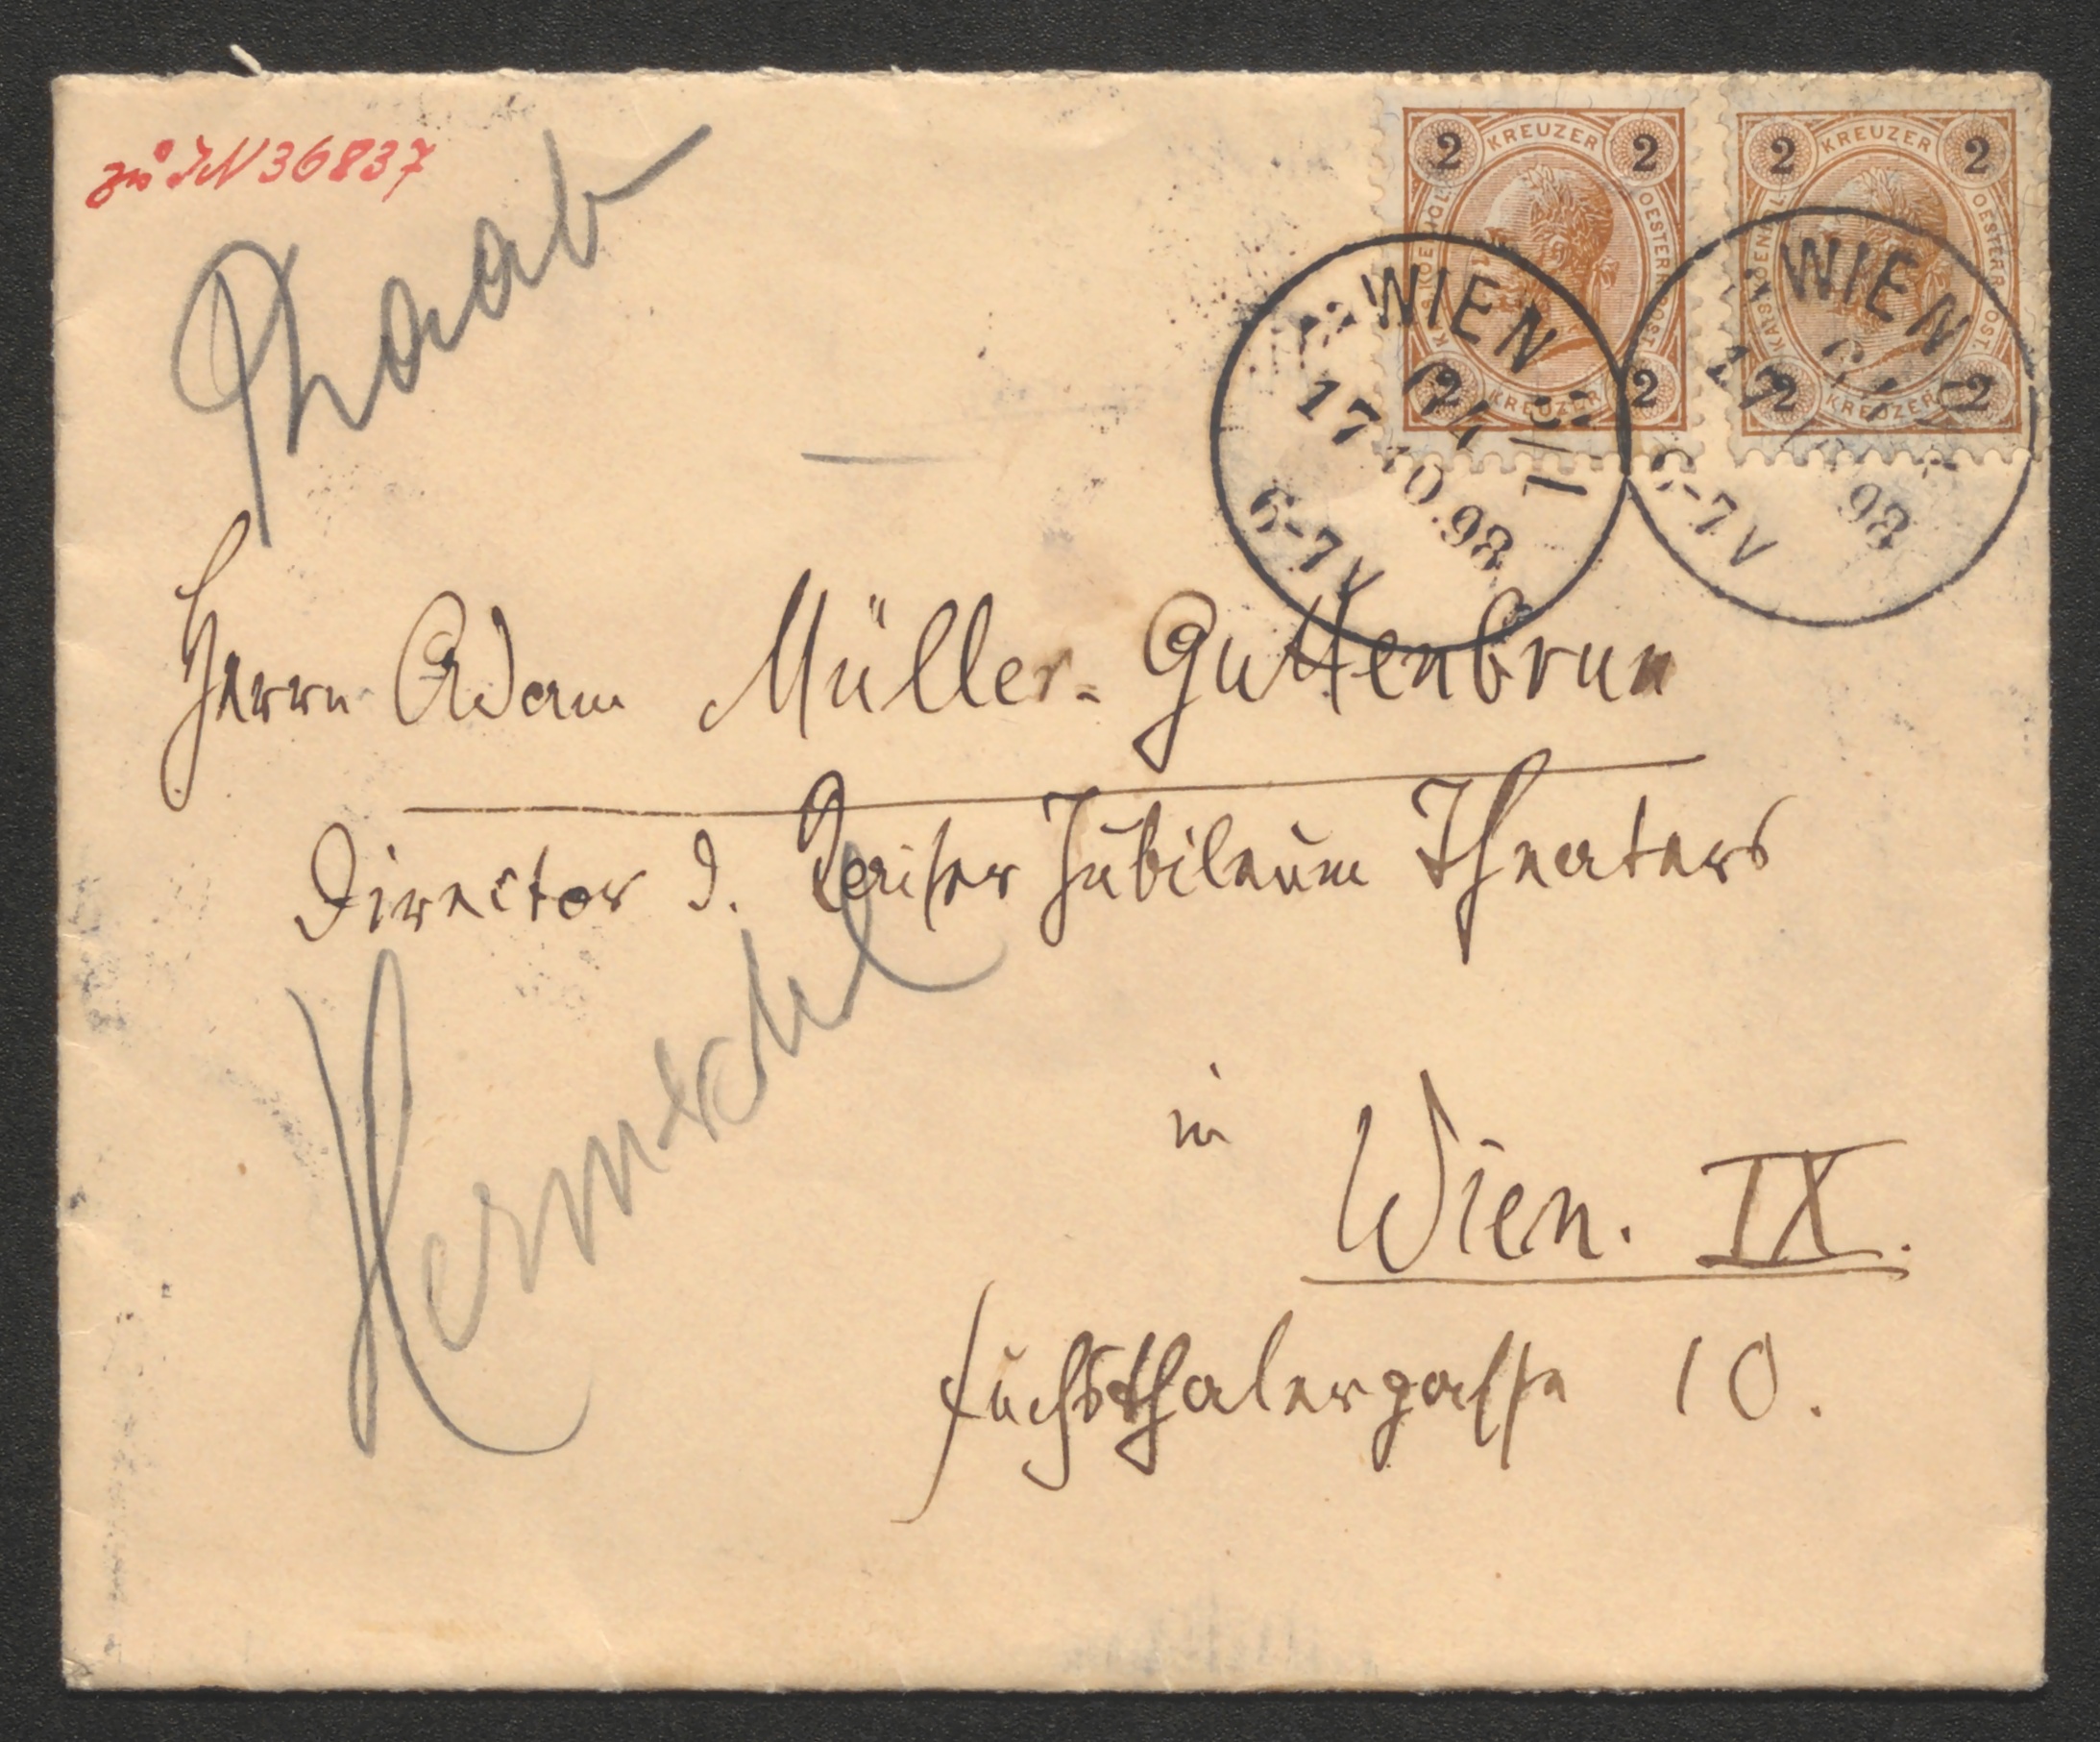 zu IN 36837
Raab
2 KREUZER 2
2 KREUZER 2
2 KREUZER 2
2 KREUZER 2
WIEN
17.10.98
6-7V
WIEN
98
-7V
Herrn Adam Müller-Guttenbrun
Director d. Kaiser Jubileum Theaters
in Wien. IX.
Fuchsthalergasse 10.